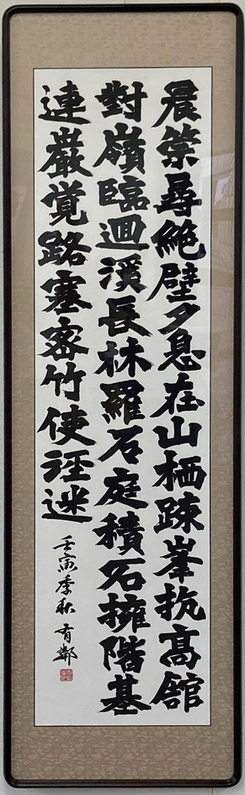 晨策尋絶壁夕息在山栖疎峯抗高館
對嶺臨迴溪長林羅石庭積石擁階基
連巌覚路塞密竹使径迷
壬寅季秋 有鄰